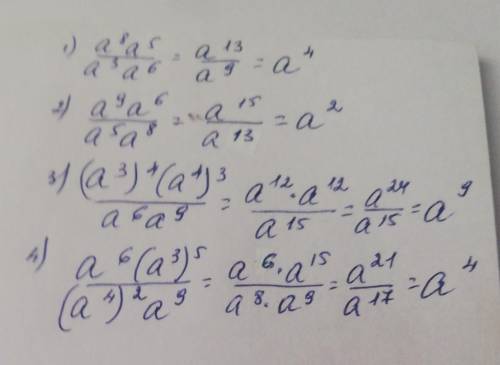 1) a⁸a⁵/a³a⁶ = a¹³/a⁹ = a⁴
2) a⁹a⁶/a⁵a⁸ = a¹⁵/a¹³ = a²
3) (a³)⁴(a⁴)³/a⁶a⁹ = a¹²·a¹²/a¹⁵ = a²⁴/a¹⁵ = a⁹
4) a⁶(a³)⁵/(a⁴)²a⁹ = a⁶·a¹⁵/a⁸·a⁹ = a²¹/a¹⁷ = a⁴